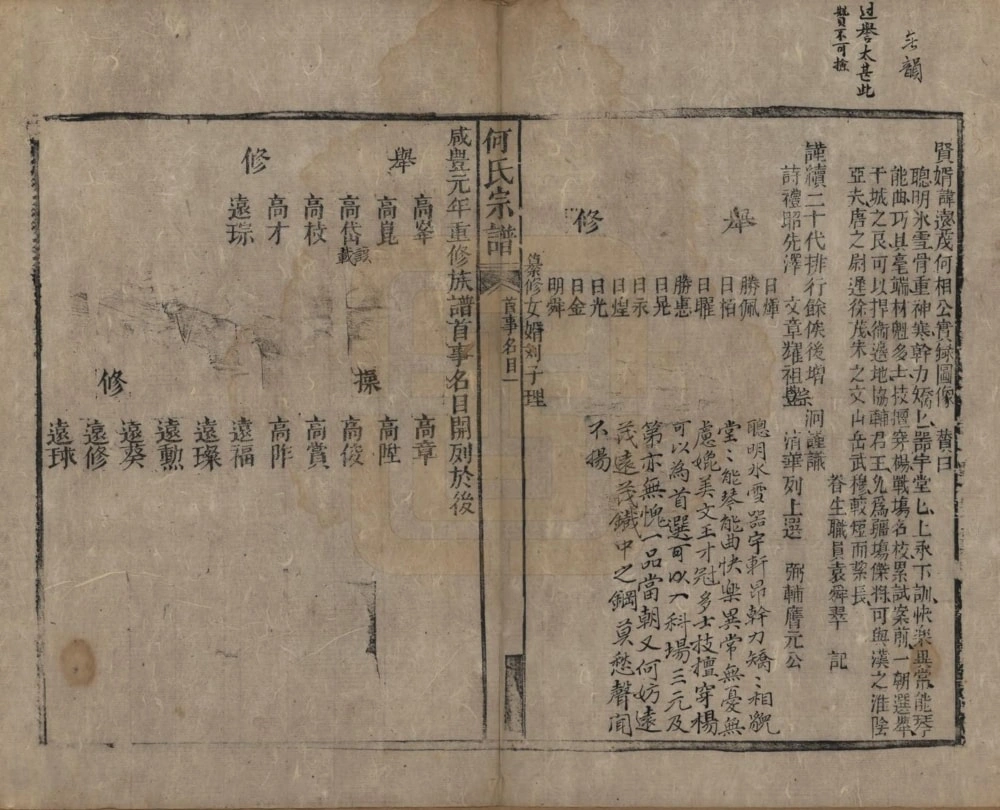 無韻
过譽太甚此
賛不可撿
賢婿諱遠茂何相公實録圖像 賛曰
聰明氷雪骨重神寒幹力矯〻器宇堂〻上承下訓快樂異常能琴
能曲巧具毫端材魁多士技擅穿楊戰塲名校累試案前一朝選舉
干城之良可以捍衛邊地協輔君王允爲疆塲傑將可與漢之淮陰
亞夫唐之尉遲徐茂宋之文山岳武穆較短而絜長
眷生職員袁舜翠 記
謹續二十代排行餘俟後增 宗洞謹議
詩禮昭先澤 文章耀祖豐 清華列上選 弼輔膺元公
舉 修
日煇
勝佩
日栢
日曜
勝惠
日晃
日永
日煌
日光
日金
明舜
纂修女婿刘子理
聰明水雪器宇軒昂幹力矯〻相貌
堂〻能琴能曲快樂異常無憂無
慮媲美文王才冠多士技擅穿楊
可以為首選可以入科場三元及
第亦無愧一品當朝又何妨遠
茂遠茂鐵中之鋼莫愁聲聞
不揚
何氏宗譜
首事名目一
咸豐元年重修族譜首事名目開列於後
舉 修
高峯
高崑
高岱
高枝
高才
遠琮
操 修
高章
高陞
高俊
高賞
高阼
遠福
遠璨
遠勲
遠葵
遠修
遠球